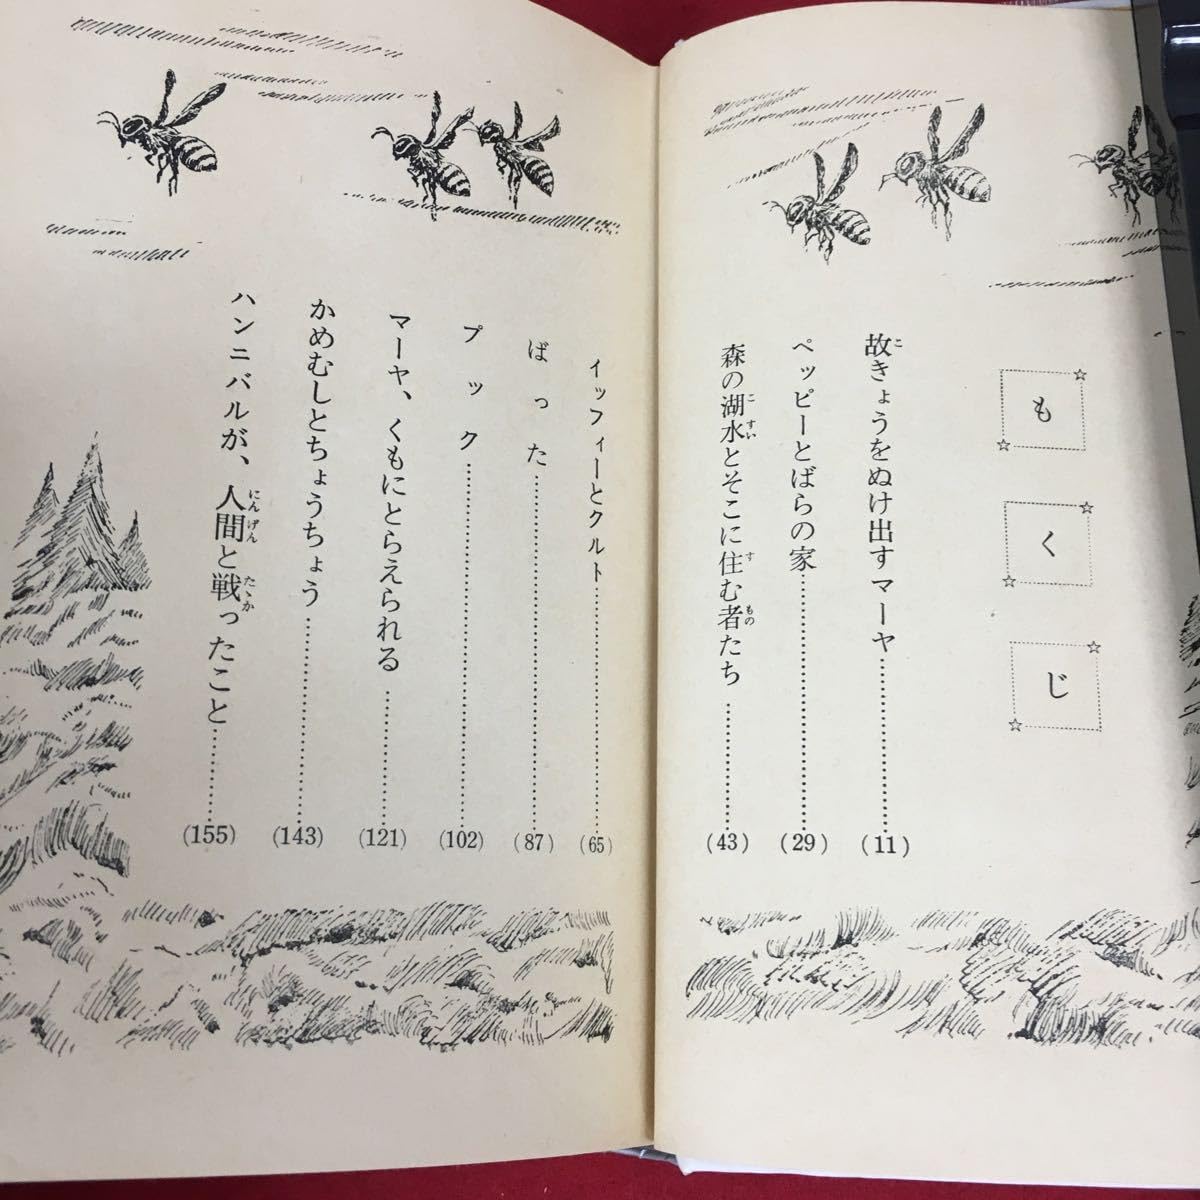 もくじ
故きょうをぬけ出すマーヤ……………(11)
ペッピーとばらの家……………(29)
森の湖水とそこに住む者たち……………(43)
イッフィーとクルト……………(65)
ばった……………(87)
プック……………(102)
マーヤ、くもにとらえられる……………(121)
かめむしとちょうちょう……………(143)
ハンニバルが、人間と戦ったこと……………(155)